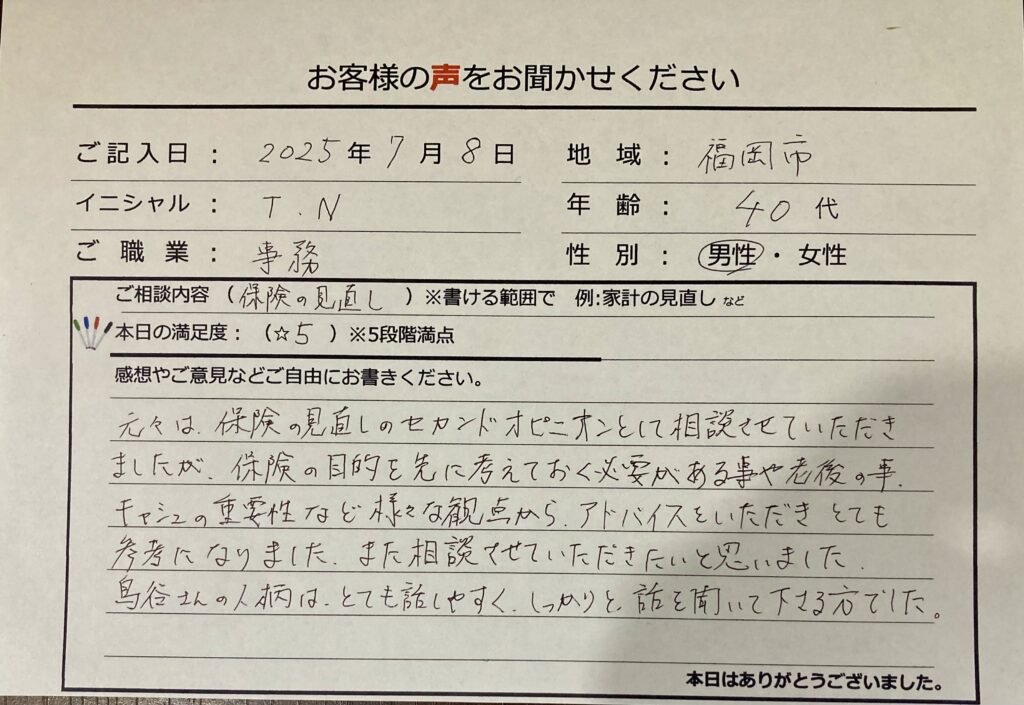 お客様の声をお聞かせください
ご記入日 : 2025年7月8日 地域 : 福岡市
イニシャル : T.N 年齢 : 40代
ご職業 : 事務 性別 : 男性・女性
ご相談内容 (保険の見直し)※書ける範囲で 例:家計の見直し など
本日の満足度: (☆5)※5段階満点
感想やご意見などご自由にお書きください。
元々は、保険の見直しのセカンドオピニオンとして相談させていただき
ましたが、保険の目的を先に考えておく必要がある事や老後の事、
キャシュの重要性など様々な観点から、アドバイスをいただきとても
参考になりました。また相談させていただきたいと思いました。
鳥谷さんの人柄は、とても話しやすく、しっかりと、話を聞いて下さる方でした。
本日はありがとうございました。